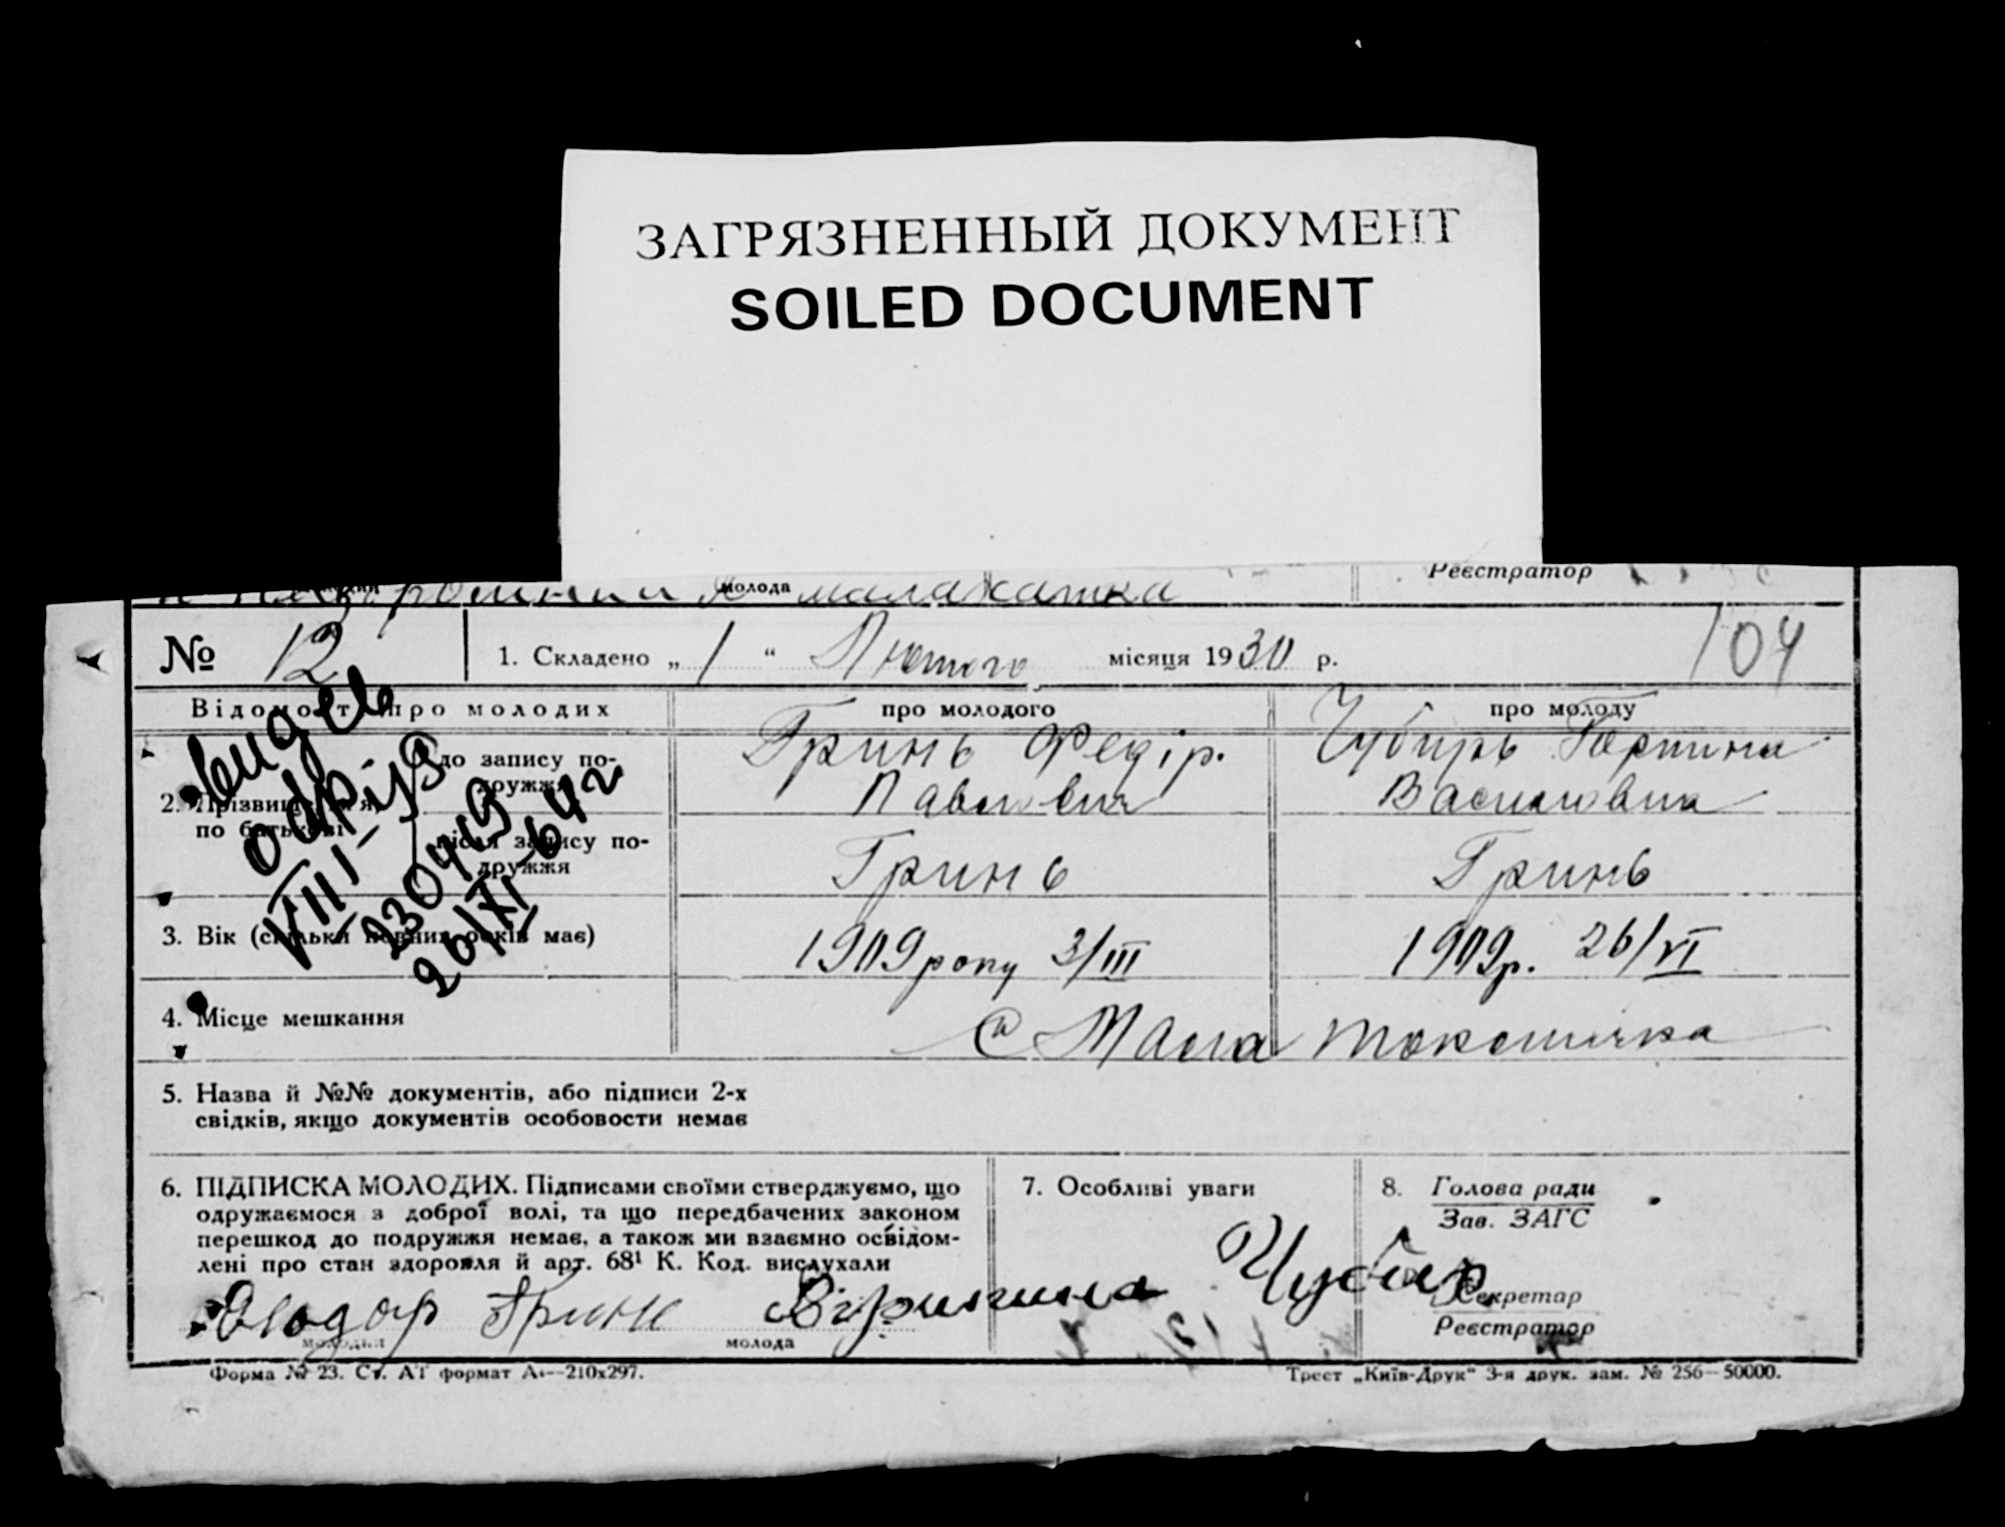 ЗАГРЯЗНЕННЫЙ ДОКУМЕНТ
SOILED DOCUMENT
молода
Реєстратор
№ 12
1. Складено „ 1 “ Лютого місяця 1930 р.
104
Відомості про молодих
про молодого
про молоду
2. Прізвище, ім'я, по батькові
до запису по-
дружжя
Гринь Федір.
Павлович
Чубирь
Василовна
після запису по-
дружжя
Гринь
Гринь
3. Вік (скільки повних років має)
1909 року 3/III
1909р. 26/VI
4. Місце мешкання
с Мала
5. Назва й №№ документів, або підписи 2-х
свідків, якщо документів особовости немає
6. ПІДПИСКА МОЛОДИХ. Підписами своїми стверджуємо, що
одружаємося з доброї волі, та що передбачених законом
перешкод до подружжя немає, а також ми взаємно освідом-
лені про стан здоровля й арт. 68¹ К. Код. вислухали
Гринь
Чубир
молодий
молода
7. Особливі уваги
8. Голова ради
Зав. ЗАГС
Секретар
Реєстратор
26/XI-64 г
Форма № 23. Ст. АТ формат А4—210х297.
Трест „Київ-Друк“ 3-я друк. зам. № 256—50000.